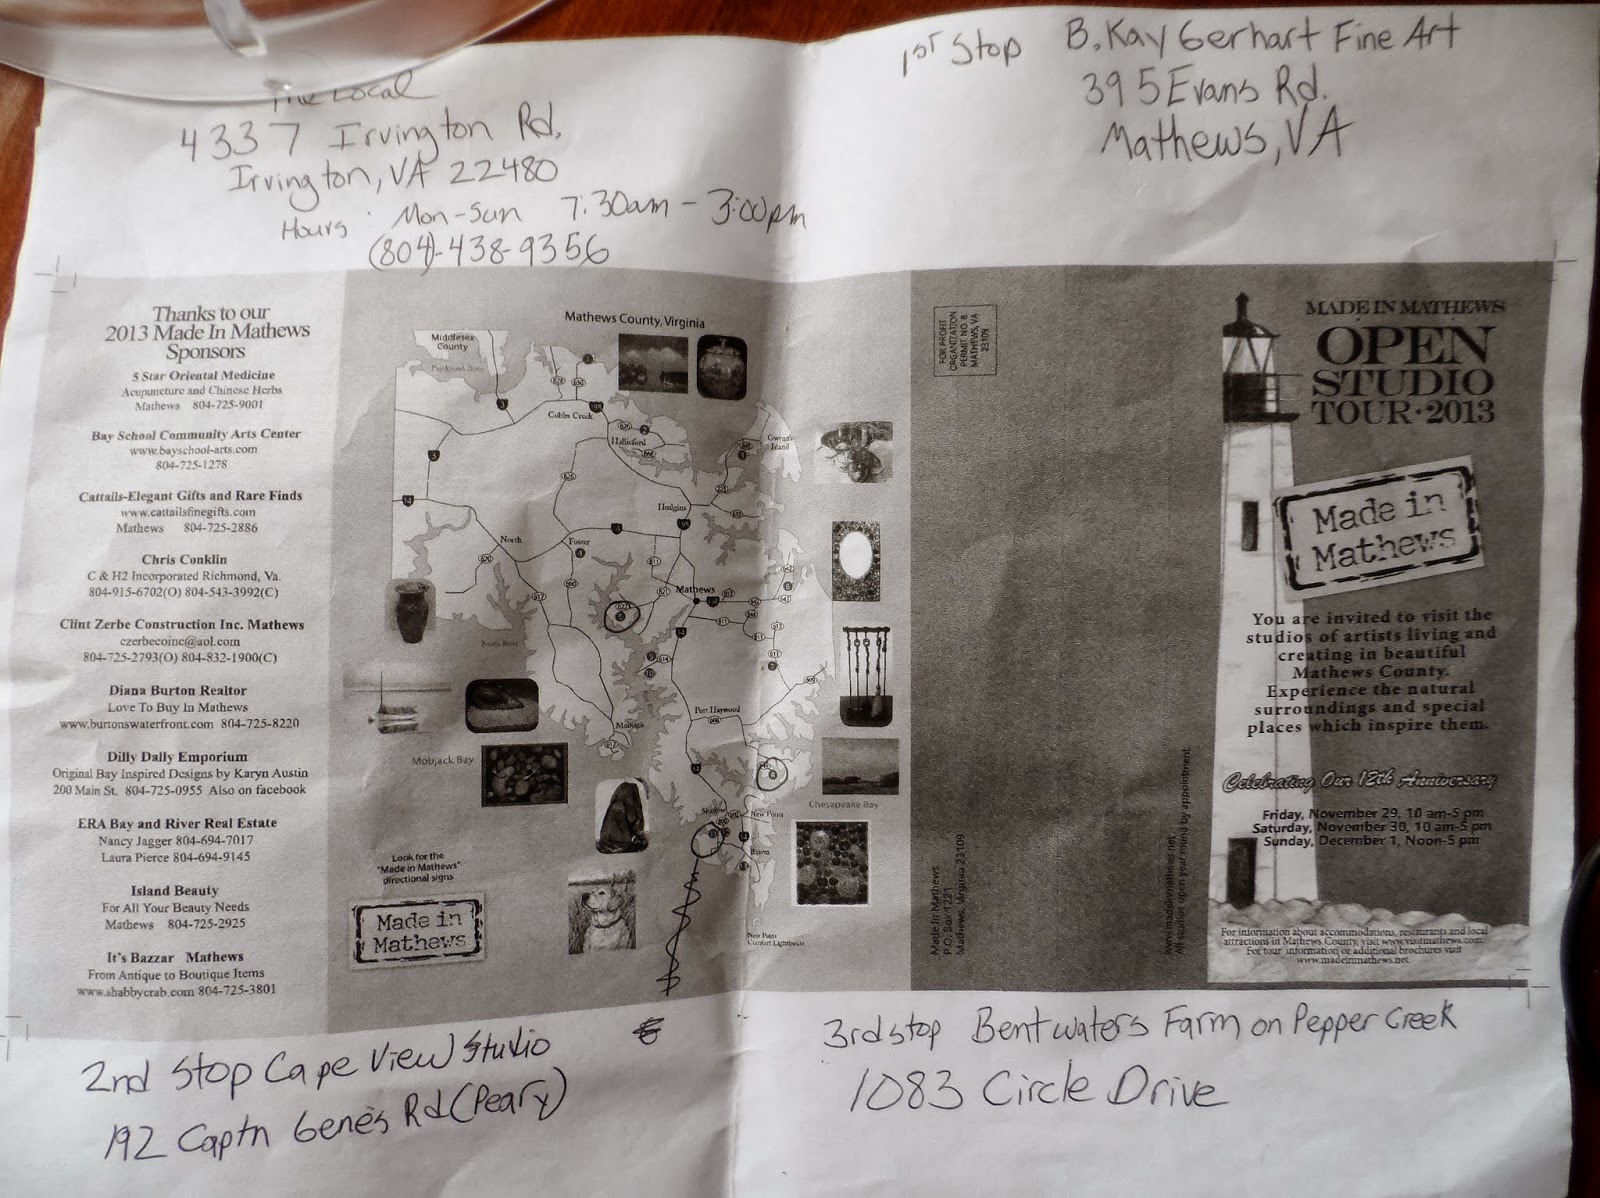 The Local
4337 Irvington Rd,
Irvington, VA 22480
Hours: Mon-Sun 7:30am - 3:00pm
(804)-438-9356
1st Stop B. Kay Gerhart Fine Art
395 Evans Rd.
Mathews, VA
Thanks to our
2013 Made In Mathews
Sponsors
5 Star Oriental Medicine
Acupuncture and Chinese Herbs
Mathews 804-725-9001
Bay School Community Arts Center
www.bayschool-arts.com
804-725-1278
Cattails-Elegant Gifts and Rare Finds
www.cattailsfinegifts.com
Mathews 804-725-2886
Chris Conklin
C & H2 Incorporated Richmond, Va.
804-915-6702(O) 804-543-3992(C)
Clint Zerbe Construction Inc. Mathews
czerbecoinc@aol.com
804-725-2793(O) 804-832-1900(C)
Diana Burton Realtor
Love To Buy In Mathews
www.burtonswaterfront.com 804-725-8220
Dilly Dally Emporium
Original Bay Inspired Designs by Karyn Austin
200 Main St. 804-725-0955 Also on facebook
ERA Bay and River Real Estate
Nancy Jagger 804-694-7017
Laura Pierce 804-694-9145
Island Beauty
For All Your Beauty Needs
Mathews 804-725-2925
It's Bazzar Mathews
From Antique to Boutique Items
www.shabbycrab.com 804-725-3801
Mathews County, Virginia
Middlesex
County
Cobbs Creek
Hallieford
Gwynn's
Island
Hudgins
North
Foster
Mathews
Port Haywood
Mobjack
Mobjack Bay
Chesapeake Bay
Shadow
New Point
Bavon
New Point
Comfort Lighthouse
Look for the
"Made in Mathews"
directional signs
Made in
Mathews
FOR PROFIT
ORGANIZATION
PERMIT NO. 8
MATHEWS, VA
23109
Made In Mathews
P.O. Box 1221
Mathews, Virginia 23109
www.madeinmathews.net
All studios open year round by appointment
MADE IN MATHEWS
OPEN
STUDIO
TOUR·2013
Made in
Mathews
You are invited to visit the
studios of artists living and
creating in beautiful
Mathews County.
Experience the natural
surroundings and special
places which inspire them.
Celebrating Our 12th Anniversary
Friday, November 29, 10 am-5 pm
Saturday, November 30, 10 am-5 pm
Sunday, December 1, Noon-5 pm
For information about accommodations, restaurants and local
attractions in Mathews County, visit www.visitmathews.com.
For tour information or additional brochures visit
www.madeinmathews.net.
2nd Stop Cape View Studio
192 Captn Gene's Rd (Peary)
3rd stop Bentwaters Farm on Pepper Creek
1083 Circle Drive